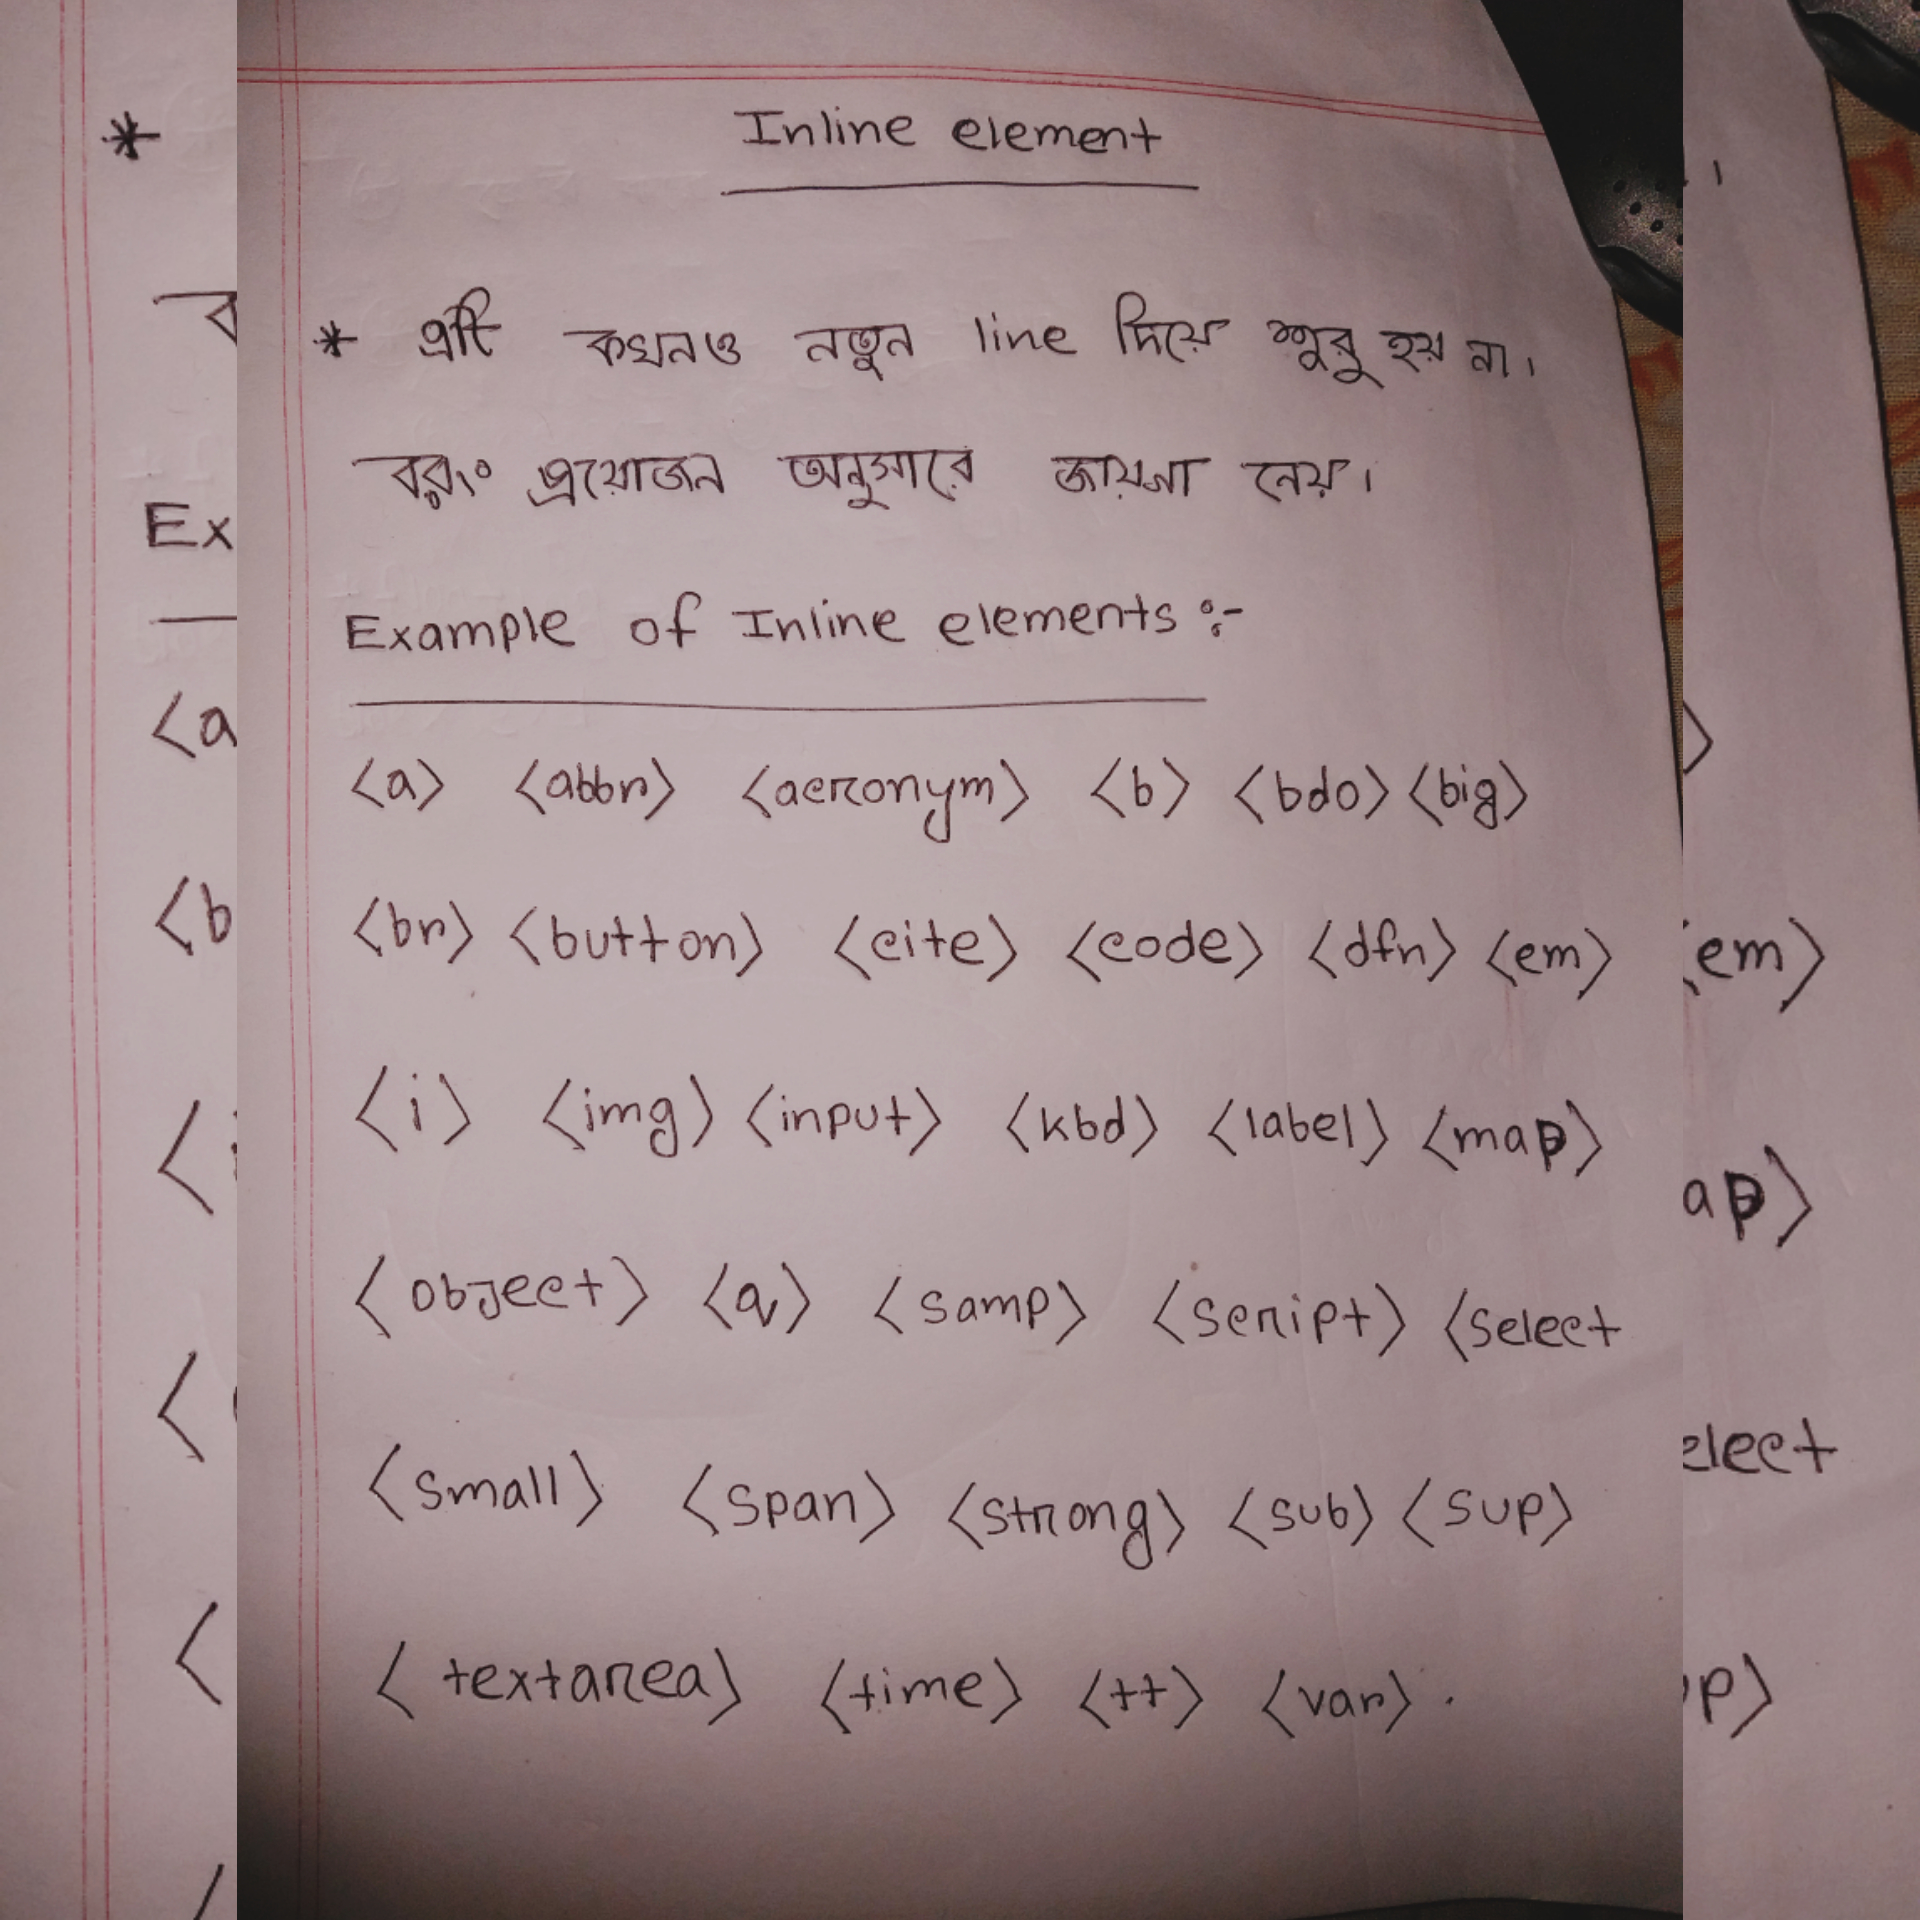 Inline element
* এটি কখনও নতুন line দিয়ে শুরু হয় না।
বরং প্রয়োজন অনুসারে জায়গা নেয়।
Example of Inline elements :-
<a> <abbr> <acronym> <b> <bdo> <big>
<br> <button> <cite> <code> <dfn> <em>
<i> <img> <input> <kbd> <label> <map>
<object> <q> <samp> <script> <select
<small> <span> <strong> <sub> <sup>
<textarea> <time> <tt> <var>.